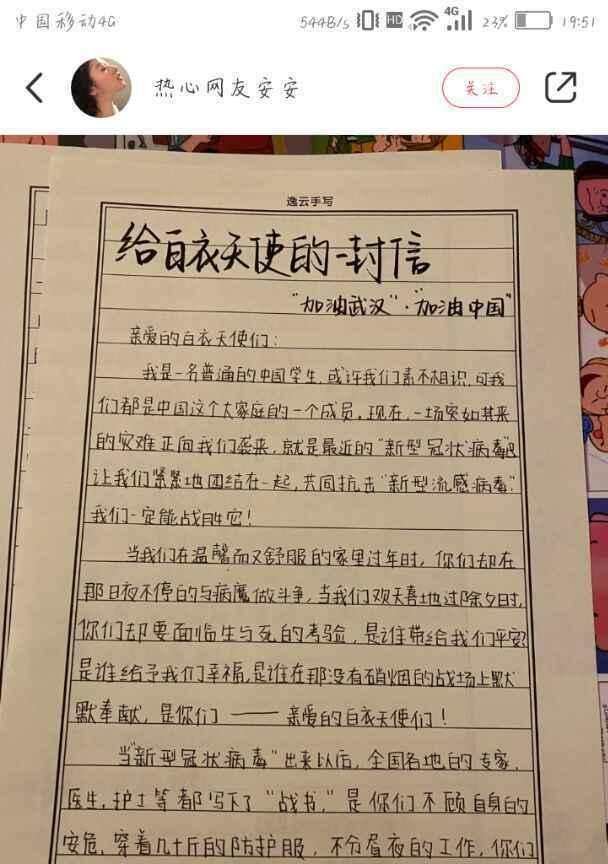 中国移动4G 544B/s HD 4G 23% 19:51
热心网友安安
关注
逸云手写
给白衣天使的一封信
"加油武汉"·"加油中国"
亲爱的白衣天使们：
我是一名普通的中国学生，或许我们素不相识，可我
们都是中国这个大家庭的一个成员。现在，一场突如其来
的灾难正向我们袭来，就是最近的"新型冠状病毒"
让我们紧紧地团结在一起，共同抗击"新型流感病毒"
我们一定能战胜它！
当我们在温馨而又舒服的家里过年时，你们却在
那日夜不停的与病魔做斗争，当我们欢天喜地过除夕时，
你们却要面临生与死的考验，是谁带给我们平安？
是谁给予我们幸福，是谁在那没有硝烟的战场上默
默奉献，是你们——亲爱的白衣天使们！
当"新型冠状病毒"出来以后，全国各地的专家，
医生，护士等都写下了"战书，"是你们不顾自身的
安危，穿着几十斤的防护服，不分昼夜的工作，你们